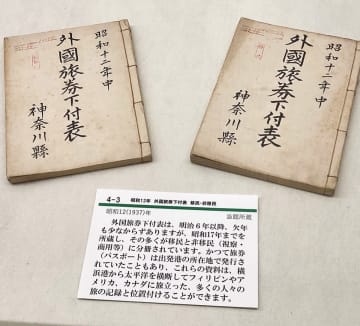 昭和十二年中
外國旅券下付表
神奈川縣
昭和十二年中
外國旅券下付表
神奈川縣
4-3 昭和12年 外国旅券下付表 移民・非移民
昭和12(1937)年 当館所蔵
外国旅券下付表は、明治6年以降、欠年
も少なからずありますが、昭和17年までを
所蔵し、その多くが移民と非移民(視察・
商用等)に分冊されています。かつて旅券
(パスポート)は出発港の所在地で発行さ
れていたこともあり、これらの資料は、横
浜港から太平洋を横断してフィリピンやア
メリカ、カナダに旅立った、多くの人々の
旅の記録と位置付けることができます。